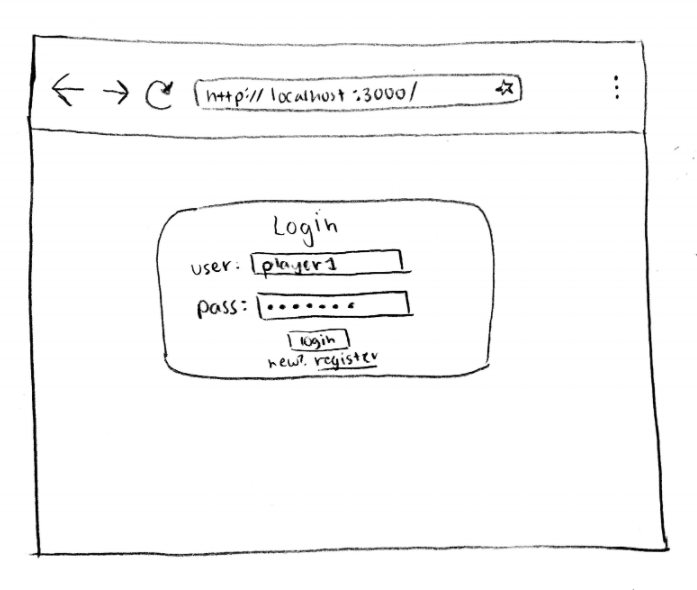 http://localhost:3000/
Login
user: player1
pass: •••••••
login
new? register